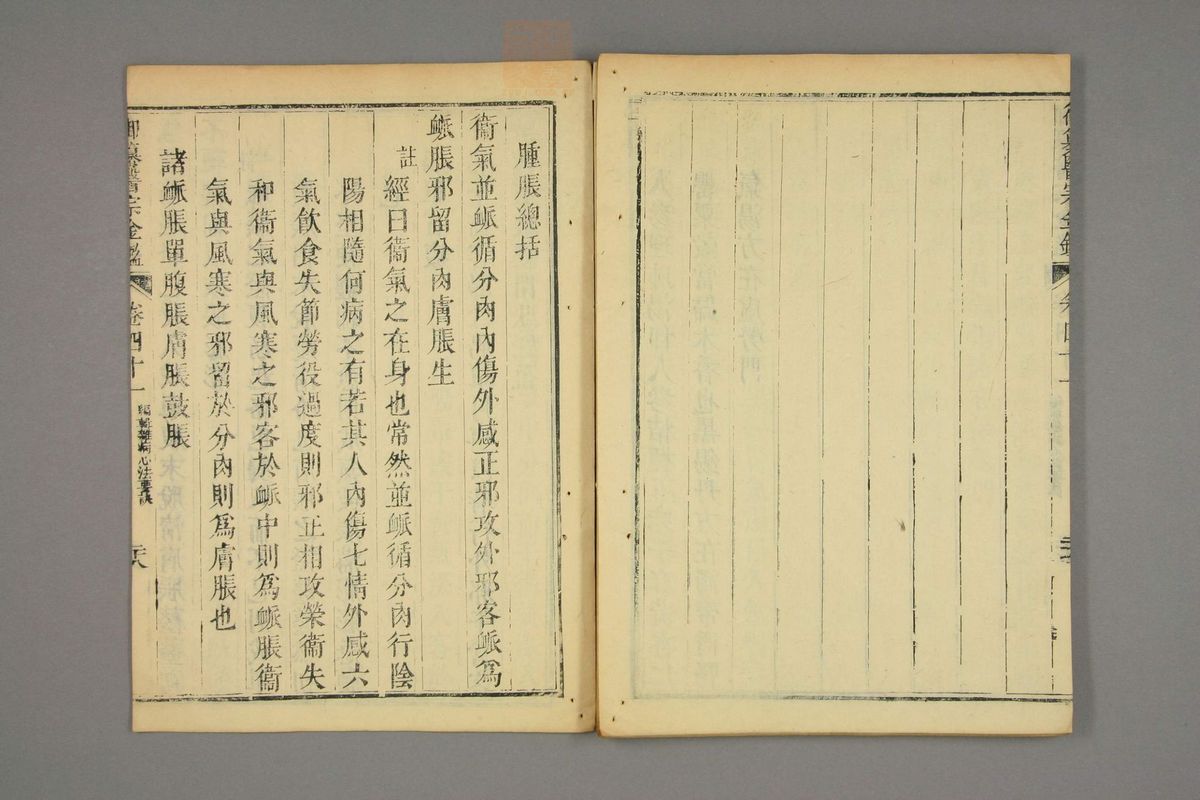 卷四十一
腫脹總括
衞氣並𧖴循分肉內傷外感正邪攻外邪客𧖴爲
𧖴脹邪留分肉膚脹生
註
經曰衞氣之在身也常然並𧖴循分肉行陰
陽相隨何病之有若其人內傷七情外感六
氣飲食失節勞役過度則邪正相攻榮衞失
和衞氣與風寒之邪客於𧖴中則爲𧖴脹衞
氣與風寒之邪留於分肉則爲膚脹也
諸𧖴脹單腹脹膚脹鼓脹
御纂醫宗金鑑
卷四十一
編輯雜病心法要訣